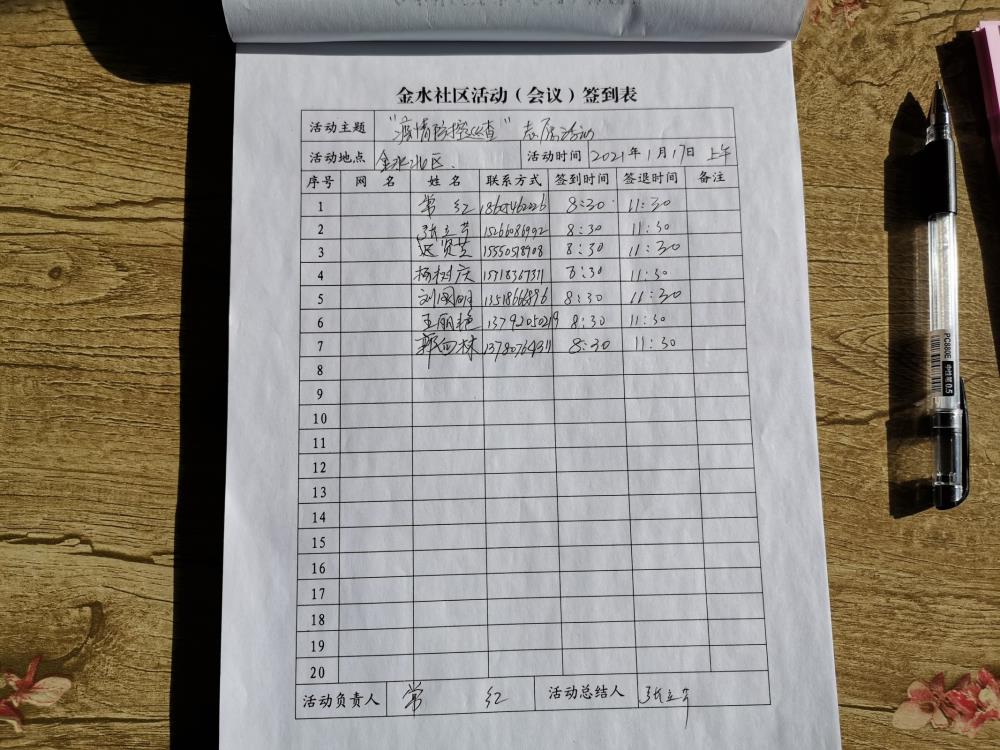 金水社区活动（会议）签到表
活动主题 "疫情防控巡查" 志愿活动
活动地点 金水社区. 活动时间 2021年1月17日 上午
序号 网 名 姓 名 联系方式 签到时间 签退时间 备注
1 常 红 8:30 11:30
2 张立芳 15266086992 8:30 11:30
3 15550518908 8:30 11:30
4 杨树庆 15718367311 8:30 11:30
5 刘国明 13518666896 8:30 11:30
6 王丽艳 13792050219 8:30 11:30
7 郭向林 13780764311 8:30 11:30
8
9
10
11
12
13
14
15
16
17
18
19
20
活动负责人 常 红 活动总结人 张立芳
PC880E
中性笔 0.5